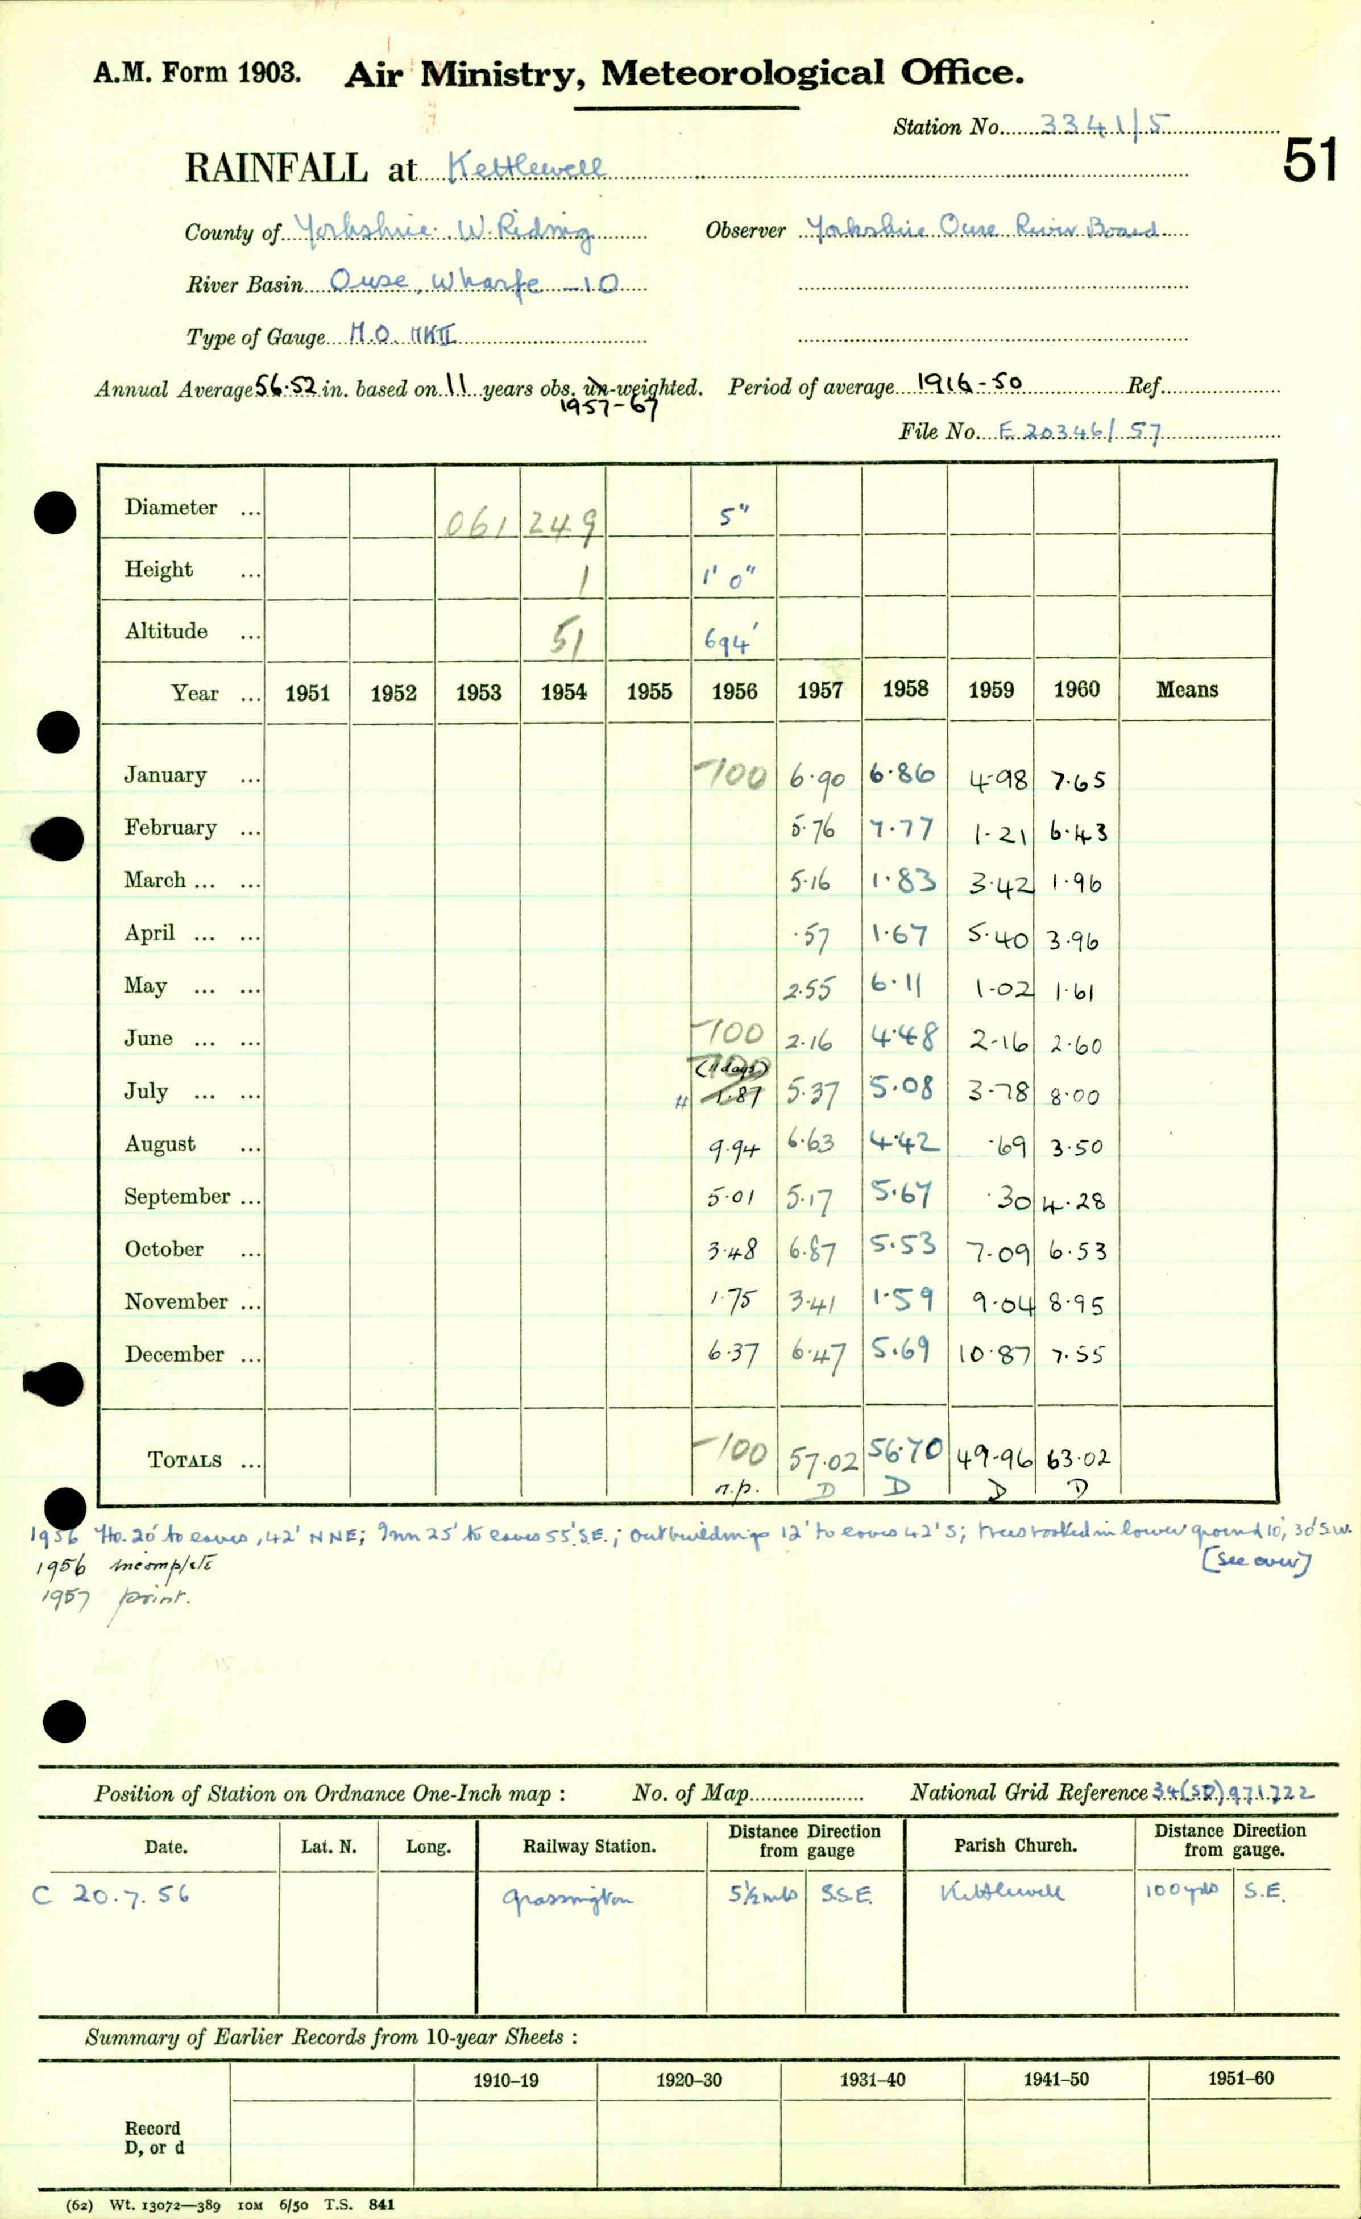 A.M. Form 1903. Air Ministry, Meteorological Office.
Station No. 3341/5
51
RAINFALL at Kettlewell
County of Yorkshire. W. Riding Observer Yorkshire Ouse River Board
River Basin Ouse, Wharfe -10
Type of Gauge M.O. MKII
Annual Average 56.52 in. based on 11 years obs. un-weighted. Period of average 1916-50 Ref.
1957-67
File No. E 20346/57
Diameter ... 061 249 5"
Height ... 1 1' 0"
Altitude ... 51 694'
Year ... 1951 1952 1953 1954 1955 1956 1957 1958 1959 1960 Means
January ... -100 6.90 6.86 4.98 7.65
February ... 5.76 7.77 1.21 6.43
March ... ... 5.16 1.83 3.42 1.96
April ... ... .57 1.67 5.40 3.96
May ... ... 2.55 6.11 1.02 1.61
June ... ... -100 2.16 4.48 2.16 2.60
-100 (11 days)
July ... ... # 1.87 5.37 5.08 3.78 8.00
August ... 9.94 6.63 4.42 .69 3.50
September ... 5.01 5.17 5.67 .30 4.28
October ... 3.48 6.87 5.53 7.09 6.53
November ... 1.75 3.41 1.59 9.04 8.95
December ... 6.37 6.47 5.69 10.87 7.55
TOTALS ... -100 57.02 56.70 49.96 63.02
n.p. D D D D
1956 Ho. 20' to eaves, 42' NNE; Inn 25' to eaves 55' S.E.; outbuildings 12' to eaves 42' S; trees rooted in lower ground 10', 30' S.W.
1956 incomplete [see over]
1957 print.
Position of Station on Ordnance One-Inch map : No. of Map National Grid Reference 34(SD)971722
Date. Lat. N. Long. Railway Station. Distance from Direction gauge Parish Church. Distance from Direction gauge.
C 20.7.56 Grassington 5½ mls S.S.E. Kettlewell 100 yds S.E.
Summary of Earlier Records from 10-year Sheets :
1910–19 1920–30 1931–40 1941–50 1951–60
Record
D, or d
(62) Wt. 13072—389 10M 6/50 T.S. 841